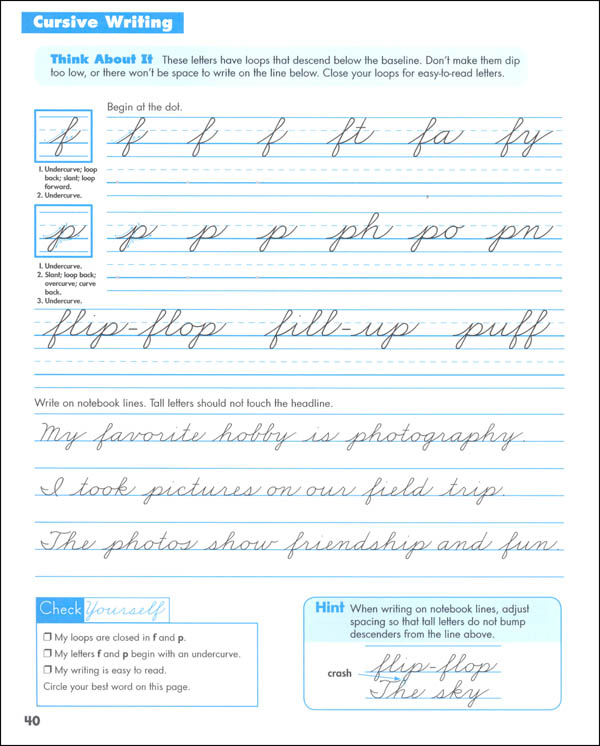 Cursive Writing
Think About It These letters have loops that descend below the baseline. Don't make them dip
too low, or there won't be space to write on the line below. Close your loops for easy-to-read letters.
Begin at the dot.
f f f f ft fa fy
1. Undercurve; loop
back; slant; loop
forward.
2. Undercurve.
p p p p ph po pn
1. Undercurve.
2. Slant; loop back;
overcurve; curve
back.
3. Undercurve.
flip-flop fill-up puff
Write on notebook lines. Tall letters should not touch the headline.
My favorite hobby is photography.
I took pictures on our field trip.
The photos show friendship and fun.
Check Yourself
❒ My loops are closed in f and p.
❒ My letters f and p begin with an undercurve.
❒ My writing is easy to read.
Circle your best word on this page.
Hint When writing on notebook lines, adjust
spacing so that tall letters do not bump
descenders from the line above.
flip-flop
crash
The sky
40